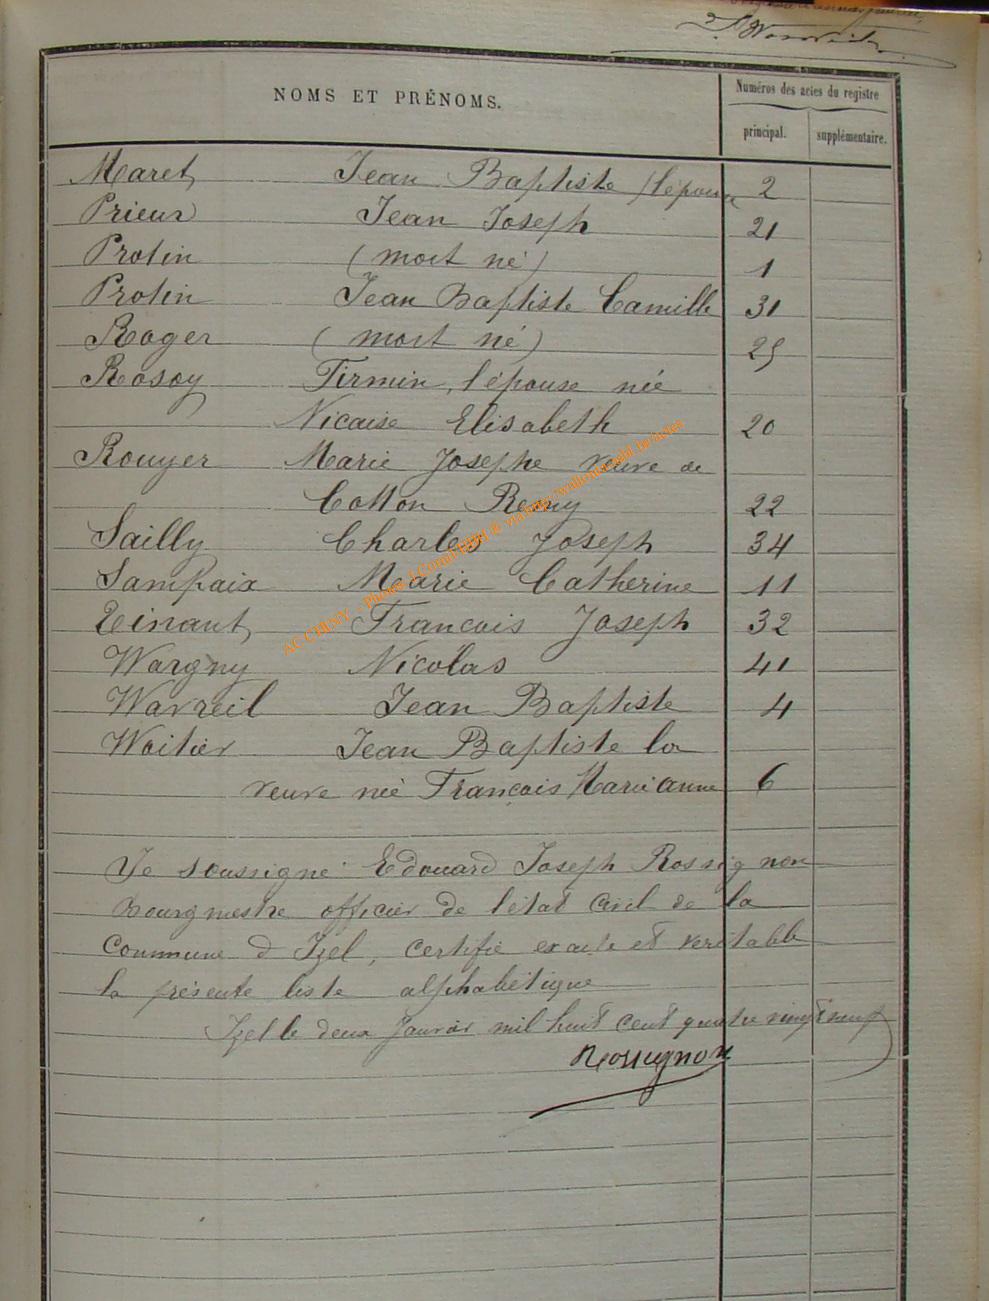 NOMS ET PRÉNOMS.
Numéros des actes du registre
principal.
supplémentaire.
Maret Jean Baptiste (l'époux 2
Prieur Jean Joseph 21
Protin (mort né) 1
Protin Jean Baptiste Camille 31
Roger (mort né) 25
Rosoy Firmin, l'épouse née
Nicaise Elisabeth 20
Rouyer Marie Josephe veuve de
Cotton Remy 22
Sailly Charles Joseph 34
Sampaix Marie Catherine 11
Tinant François Joseph 32
Wargny Nicolas 41
Wavreil Jean Baptiste 4
Woitier Jean Baptiste la
veuve née François Marie Anne 6
Je soussigné Edouard Joseph Rossignon
bourgmestre officier de l'état civil de la
Commune d'Izel, certifie exacte et veritable
la présente liste alphabétique
Izel le deux Janvier mil huit cent quatre vingt neuf
Rossignon